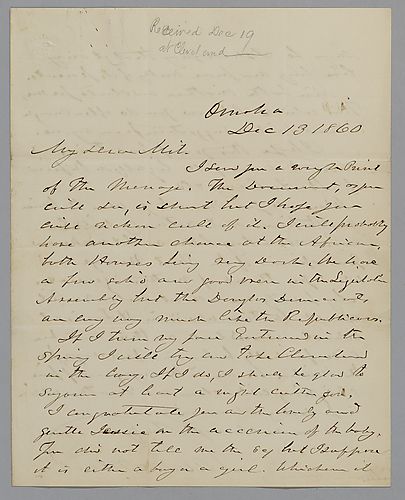 Received Dec 19
at Cleveland
Omaha
Dec 13 1860
My dear Mit.
I send you a rough Print
of the Message. The Document, as you
will see, is short but I hope you
will reckon well of it. I will probably
have another chance at the African,
both Houses being very Dark. We have
a few sol's and good men in the Legislative
Assembly but the Douglas Democrats
are very much like the Republicans.
If I turn my face Eastward in the
Spring I will try and take Cleveland
in the way. If I do, I shall be glad to
sojourn at least a night with you.
I congratulate you and the lovely and
gentle Jessie on the accession of the baby.
You did not tell me the but I suppose
it is either a boy or a girl. Whichever it